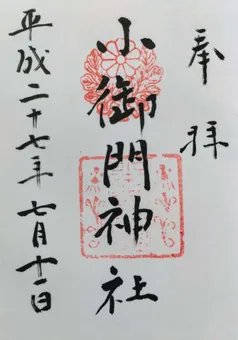 奉拝
小御門神社
平成二十七年七月十一日